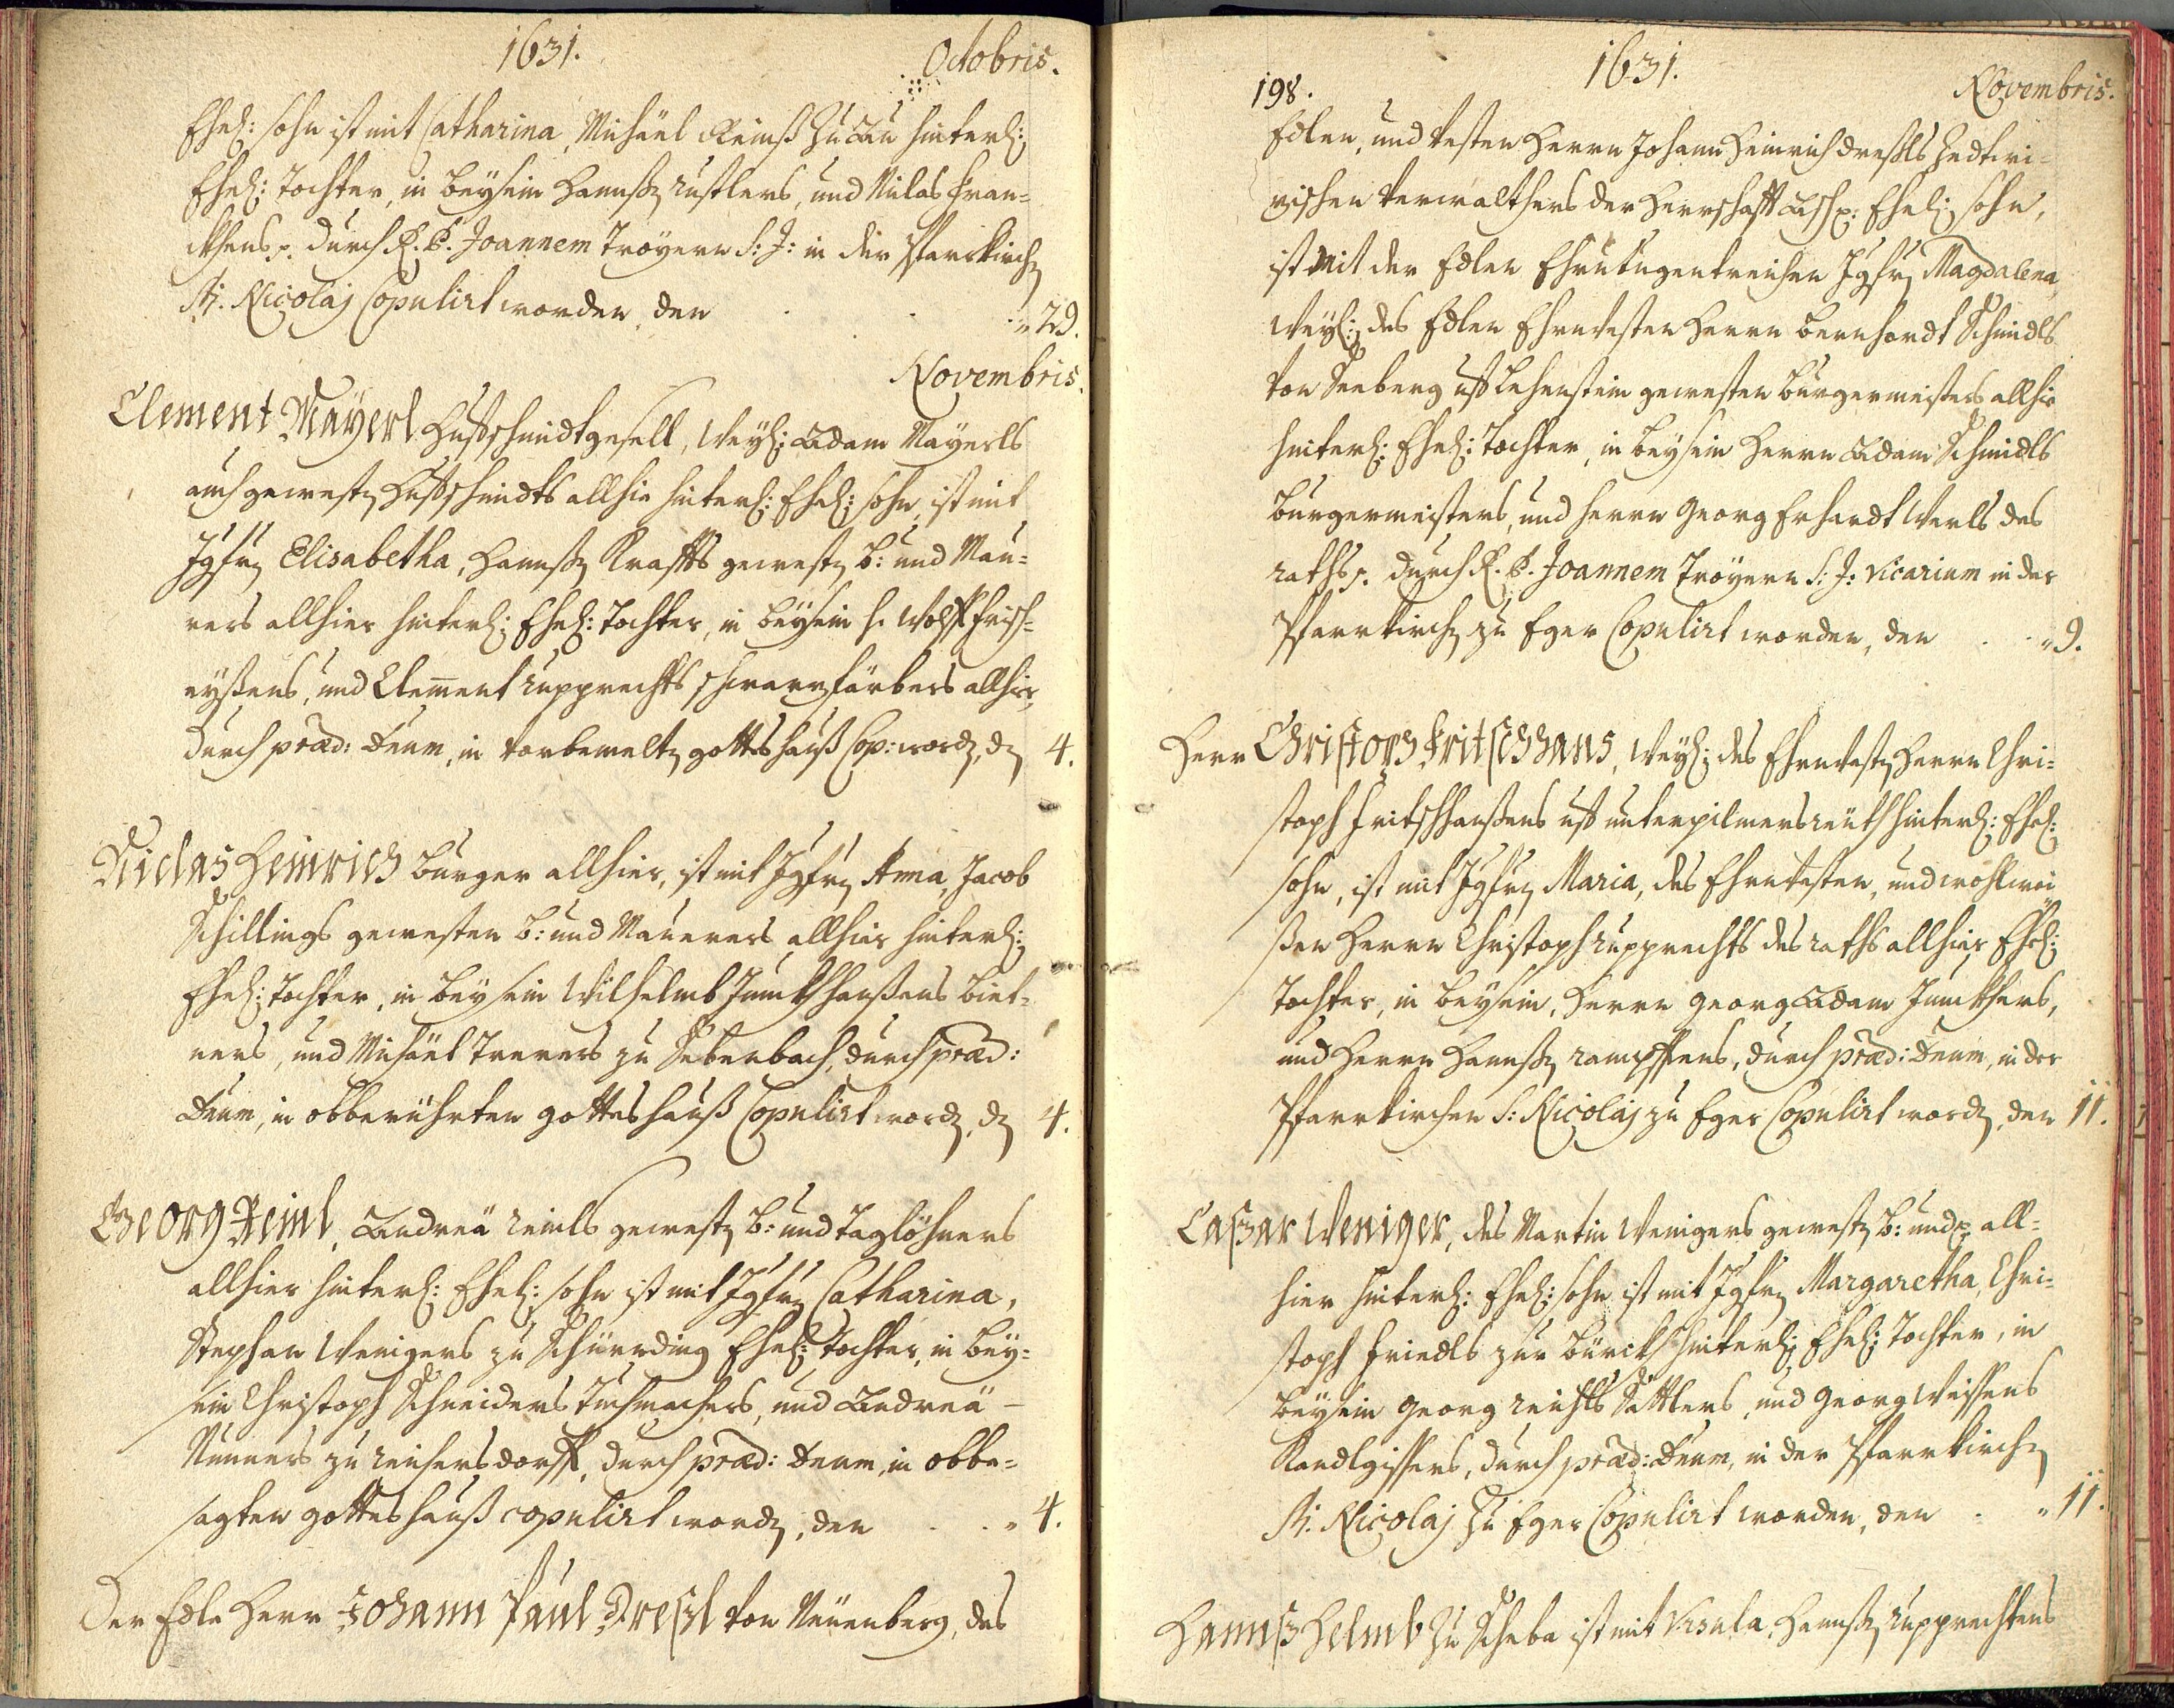 1631.
Octobris.
Ehel: sohn ist mit Catharina, Michäel Reinß zu Au hinterl:
Ehel: Tochter, in beysein Hannßen rustlers, und Niclas Fran-
ckhens p. durch R. P. Joannem Troyern S: J: in der Pfarrkirchen
St: Nicolaj Copulirt worden, den 29.
Novembris.
Clement Mayerl Huffschmidtgesell, Weyl: Adam Mayerls
auch gewesten Huffschmidts allhie hinterl: Ehel: sohn, ist mit
Jgfrn Elisabetha, Hannßen Kraffts gewesten b: und Mau-
rers allhier hinterl: Ehel: Tochter, in beysein h. Wolff Frisch-
eyßens, und Clement rupprechts schwarzfärbers allhier,
durch præd: Deum, in vorbemelten gotteshauß Cop: worden, den 4.
Niclas Heinrich burger allhier, ist mit Jgfrn Anna, Jacob
Schillings gewesten b: und Maurers allhier hinterl:
Ehel: Tochter, in beysein Wilhelmb Junckhhanßens büt-
ners, und Michäel Trerers zu Seberbach, durch præd:
Deum, in obberührten gotteshauß Copulirt worden, den 4.
Georg Reinl, Andreä reinls gewesten b: und Taglöhners
allhier hinterl: Ehel: sohn ist mit Jgfrn Catharina,
Stephan Wenigers zu Schürrding Ehel: Tochter, in bey-
sein Christoph Schneiders Tuchmachers, und Andreä –
Nunners zu reichersdorff, durch præd: Deum, in obbe-
sagten gotteshauß copulirt worden, den 4.
Der Edle Herr Johann Paul Dreßl von Neüenberg, des
198.
1631.
Novembris.
Edlen, und vesten Herrn Johann Heinrich dreßls Zedtwi-
zischen verwalthers der Herrschafft Asch p: Ehel: sohn,
ist mit der Edlen Ehrntugentreichen Jgfrn Magdalena,
Weyl: des Edlen Ehrnvesten Herrn bernhardt Schmidls
von Seeberg uff Lehenstein gewesten burgermeisters allhie
hinterl: Ehel: Tochter, in beysein Herrn Adam Schmidls
burgermeisters, und Herrn Georg Erhardt Werls des
raths p. durch R. P. Joannem Troyern S: J: Vicarium in der
Pfarrkirchen zu Eger Copulirt worden, den 9.
Herr Christoph Fritschhans, Weyl: des Ehrnvesten Herrn Chri-
stoph Fritschhanßens uff unterpilmersreüth hinterl: Ehel:
sohn, ist mit Jgfrn Maria, des Ehrnvesten, und wohlwei
ßen Herrn Christoph rupprechts des raths allhier Ehel:
Tochter, in beysein, Herrn Georg Adam Junckhers,
und Herrn Hannßen rampffens, durch præd: Deum, in der
Pfarrkirchen S: Nicolaj zu Eger Copulirt worden, den 11.
Caspar Weniger, des Martin Wenigers gewesten b: und p. all-
hier hinterl: Ehel: sohn ist mit Jgfrn Margaretha, Chri-
stoph Friedls zur bürckh hinterl: Ehel: Tochter, in
beysein Georg reichls Sattlers, und Georg Weissens
Kandlgissers, durch præd: Deum, in der Pfarrkirchen
St: Nicolaj zu Eger Copulirt worden, den 11.
Hannß Helmb zu Scheba ist mit Ursula, Hannßen rupprechtens